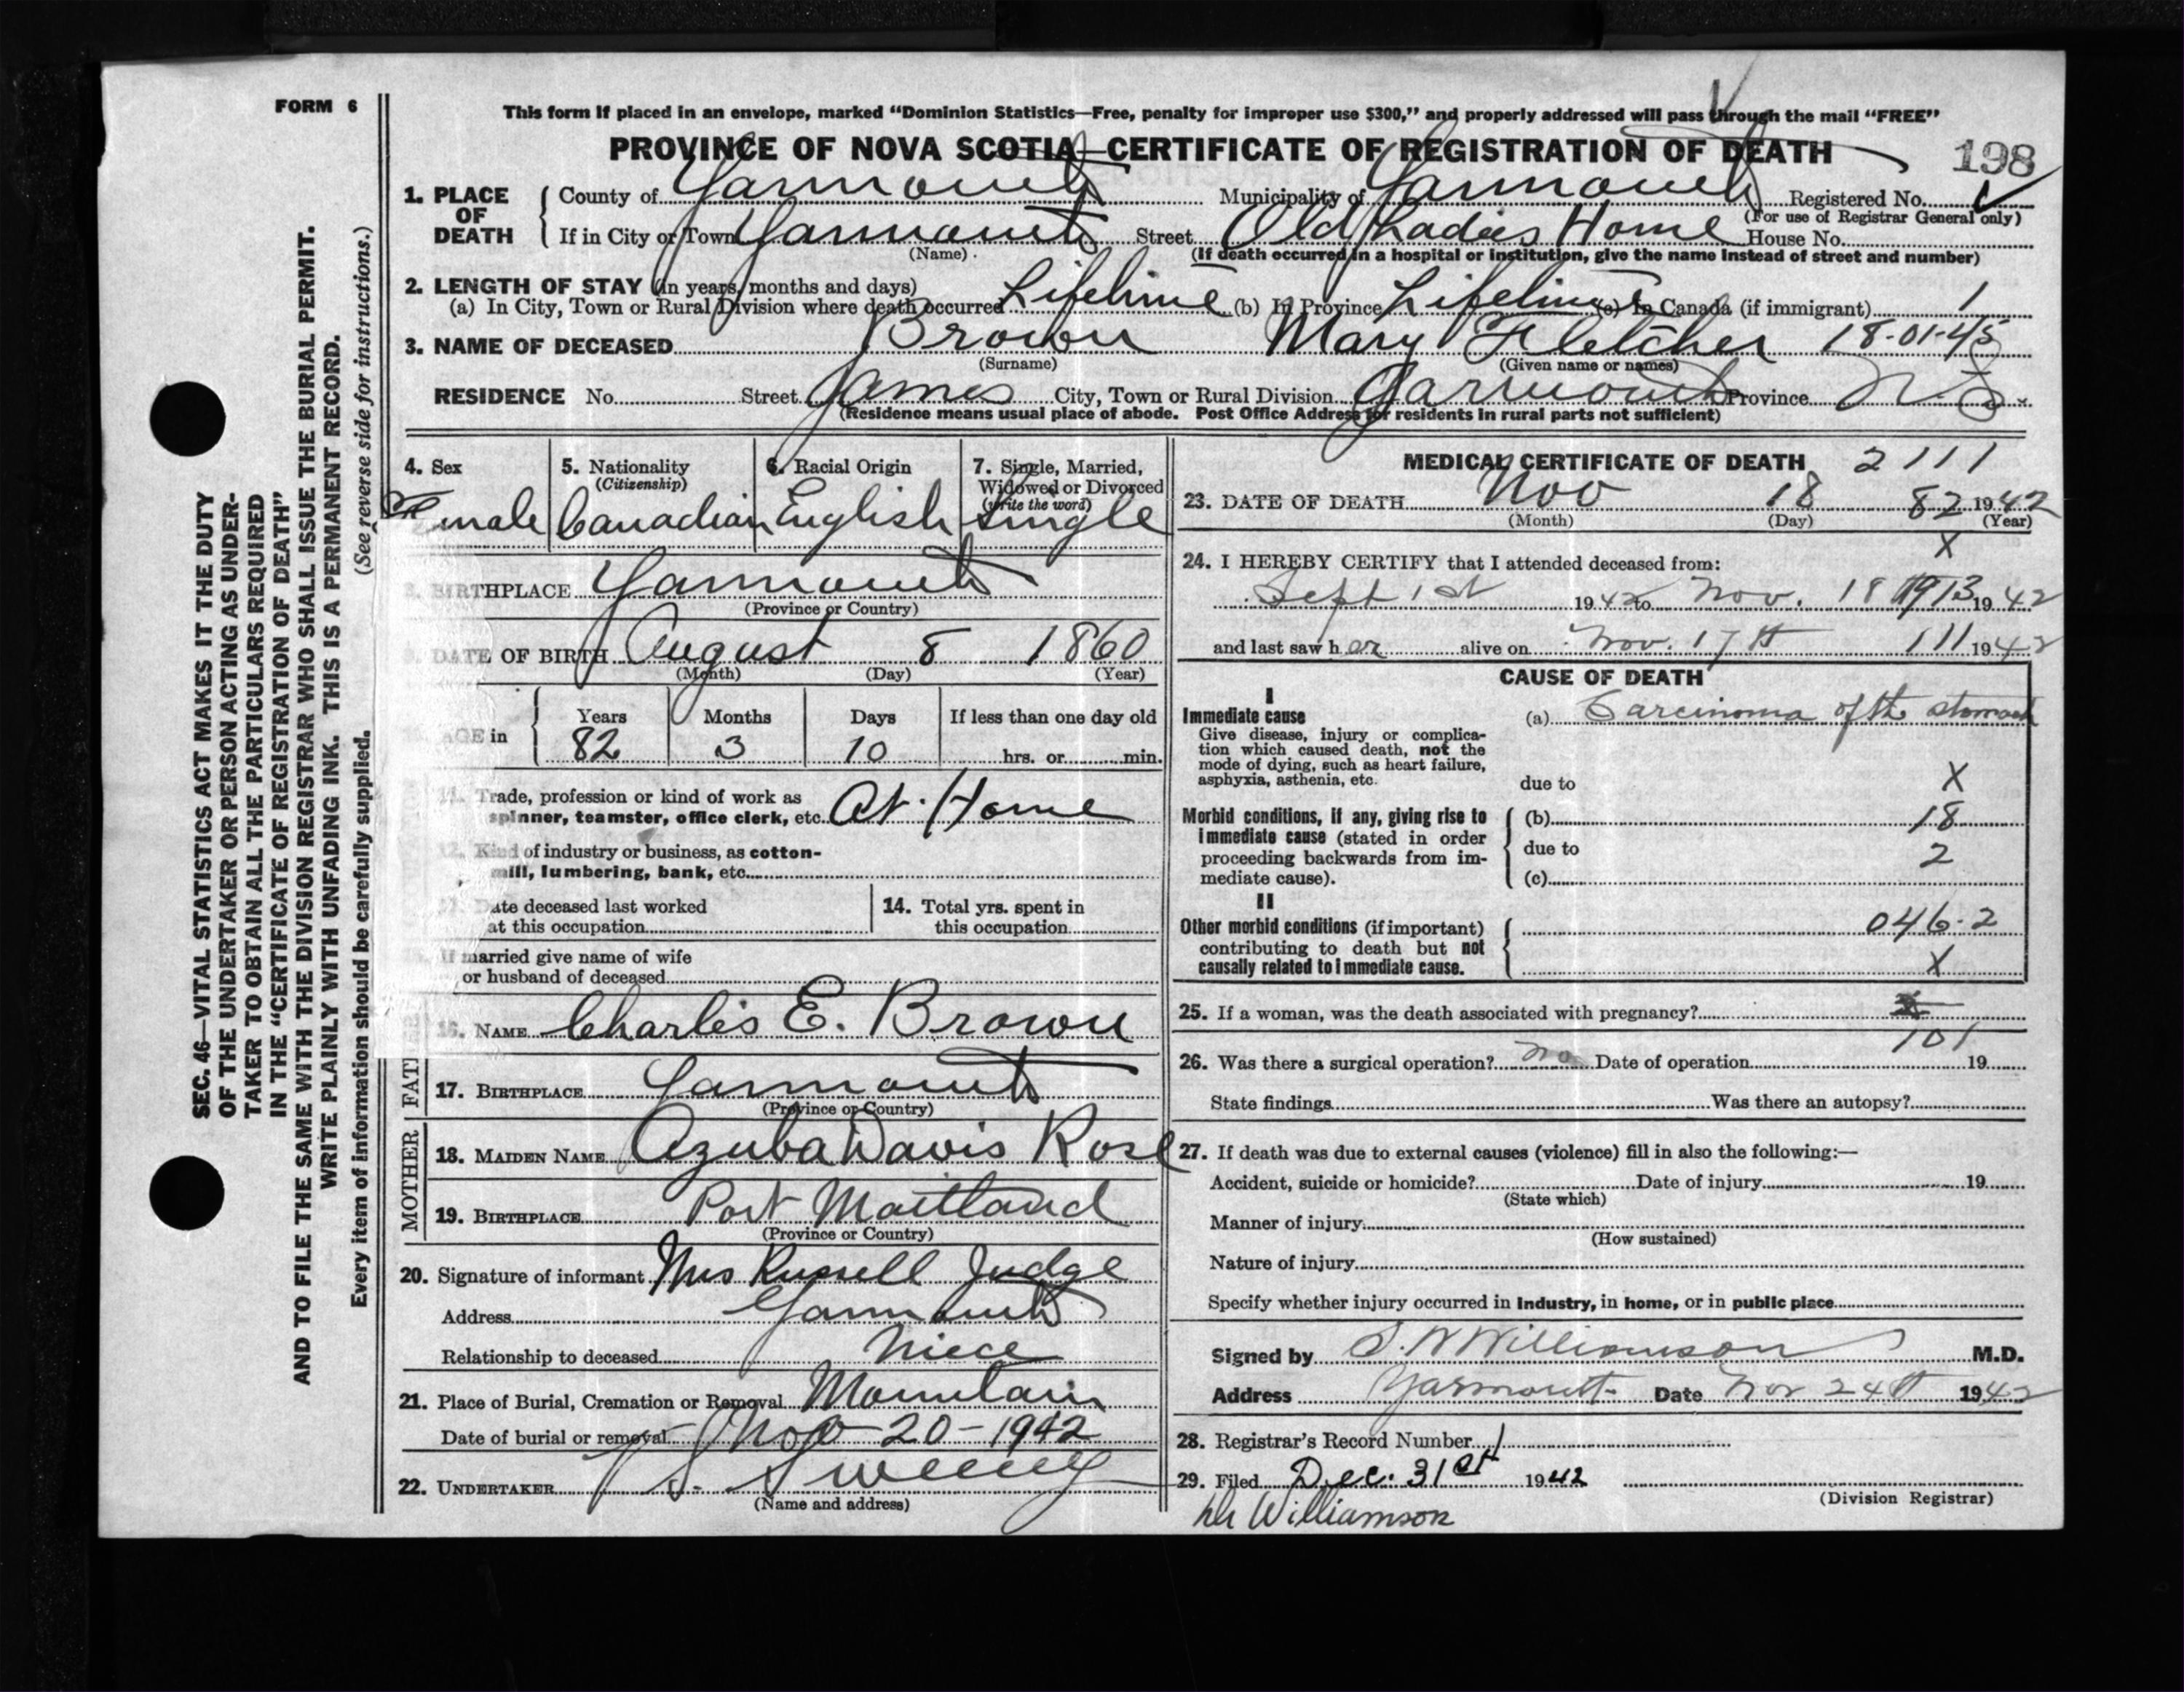 FORM 6
This form if placed in an envelope, marked “Dominion Statistics—Free, penalty for improper use $300,” and properly addressed will pass through the mail “FREE”
PROVINCE OF NOVA SCOTIA—CERTIFICATE OF REGISTRATION OF DEATH
198
1. PLACE OF DEATH
County of Yarmouth Municipality of Yarmouth Registered No.
(For use of Registrar General only)
If in City or Town Yarmouth Street Old Ladies Home House No.
(Name)
(If death occurred in a hospital or institution, give the name instead of street and number)
2. LENGTH OF STAY (in years, months and days)
(a) In City, Town or Rural Division where death occurred Lifetime (b) In Province Lifetime (c) In Canada (if immigrant) 1
3. NAME OF DECEASED Brown Mary Fletcher 18-01-45
(Surname) (Given name or names)
RESIDENCE No. Street James City, Town or Rural Division Yarmouth Province N.S.
(Residence means usual place of abode. Post Office Address for residents in rural parts not sufficient)
4. Sex
Female
5. Nationality
(Citizenship)
Canadian
6. Racial Origin
English
7. Single, Married,
Widowed or Divorced
(write the word)
Single
BIRTHPLACE Yarmouth
(Province or Country)
DATE OF BIRTH August 8 1860
(Month) (Day) (Year)
AGE in
Years Months Days If less than one day old
82 3 10 hrs. or min.
11. Trade, profession or kind of work as
spinner, teamster, office clerk, etc. At Home
12. Kind of industry or business, as cotton-
mill, lumbering, bank, etc.
Date deceased last worked
at this occupation
14. Total yrs. spent in
this occupation
If married give name of wife
or husband of deceased
FATHER
16. NAME Charles E. Brown
17. BIRTHPLACE Yarmouth
(Province or Country)
MOTHER
18. MAIDEN NAME Azuba Davis Rose
19. BIRTHPLACE Port Maitland
(Province or Country)
20. Signature of informant Mrs Russell Judge
Address Yarmouth
Relationship to deceased Niece
21. Place of Burial, Cremation or Removal Mountain
Date of burial or removal Nov 20-1942
22. UNDERTAKER S. Sweeney
(Name and address)
MEDICAL CERTIFICATE OF DEATH 2111
23. DATE OF DEATH Nov 18 82 1942
(Month) (Day) (Year)
X
24. I HEREBY CERTIFY that I attended deceased from:
Sept 1st 1942 to Nov. 18 1913 1942
and last saw her alive on Nov. 17th 111 1942
CAUSE OF DEATH
I
Immediate cause
Give disease, injury or complica-
tion which caused death, not the
mode of dying, such as heart failure,
asphyxia, asthenia, etc.
(a) Carcinoma of the stomach
due to X
Morbid conditions, if any, giving rise to
immediate cause (stated in order
proceeding backwards from im-
mediate cause).
(b) 18
due to 2
(c)
II
Other morbid conditions (if important)
contributing to death but not
causally related to immediate cause.
046.2
X
25. If a woman, was the death associated with pregnancy?
101
26. Was there a surgical operation? no Date of operation 19
State findings Was there an autopsy?
27. If death was due to external causes (violence) fill in also the following:—
Accident, suicide or homicide? Date of injury 19
(State which)
Manner of injury
(How sustained)
Nature of injury
Specify whether injury occurred in industry, in home, or in public place
Signed by S. W Williamson M.D.
Address Yarmouth Date Nov 24th 1942
28. Registrar's Record Number
29. Filed Dec. 31st 1942
(Division Registrar)
Dr Williamson
SEC. 46—VITAL STATISTICS ACT MAKES IT THE DUTY
OF THE UNDERTAKER OR PERSON ACTING AS UNDER-
TAKER TO OBTAIN ALL THE PARTICULARS REQUIRED
IN THE “CERTIFICATE OF REGISTRATION OF DEATH”
AND TO FILE THE SAME WITH THE DIVISION REGISTRAR WHO SHALL ISSUE THE BURIAL PERMIT.
WRITE PLAINLY WITH UNFADING INK. THIS IS A PERMANENT RECORD.
Every item of information should be carefully supplied. (See reverse side for instructions.)